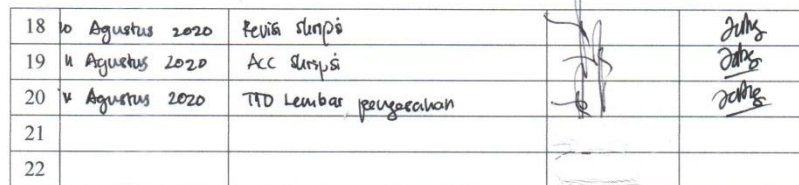 18 10 Agustus 2020 Revisi skripsi
19 11 Agustus 2020 ACC skripsi
20 Agustus 2020 TTD Lembar pengesahan
21
22